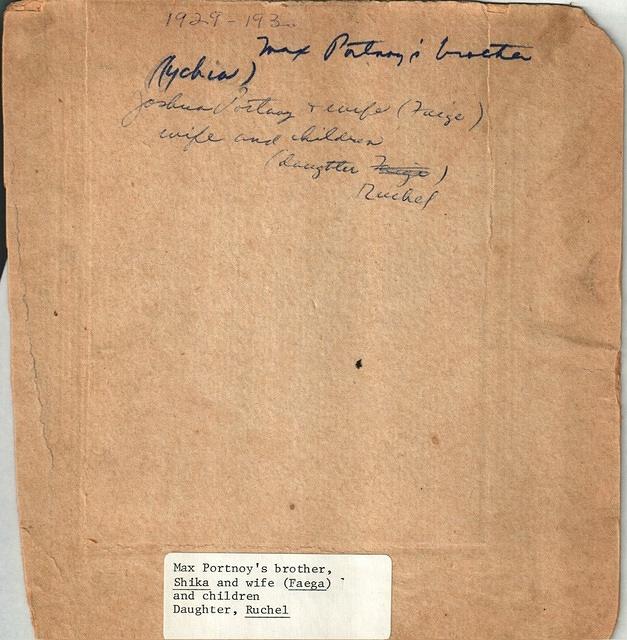 1929-193
Max Portnoy's brother
Joshua Portnoy + wife (Faige)
wife and children
(daughter Faige)
Ruchel
Max Portnoy's brother,
Shika and wife (Faega)
and children
Daughter, Ruchel